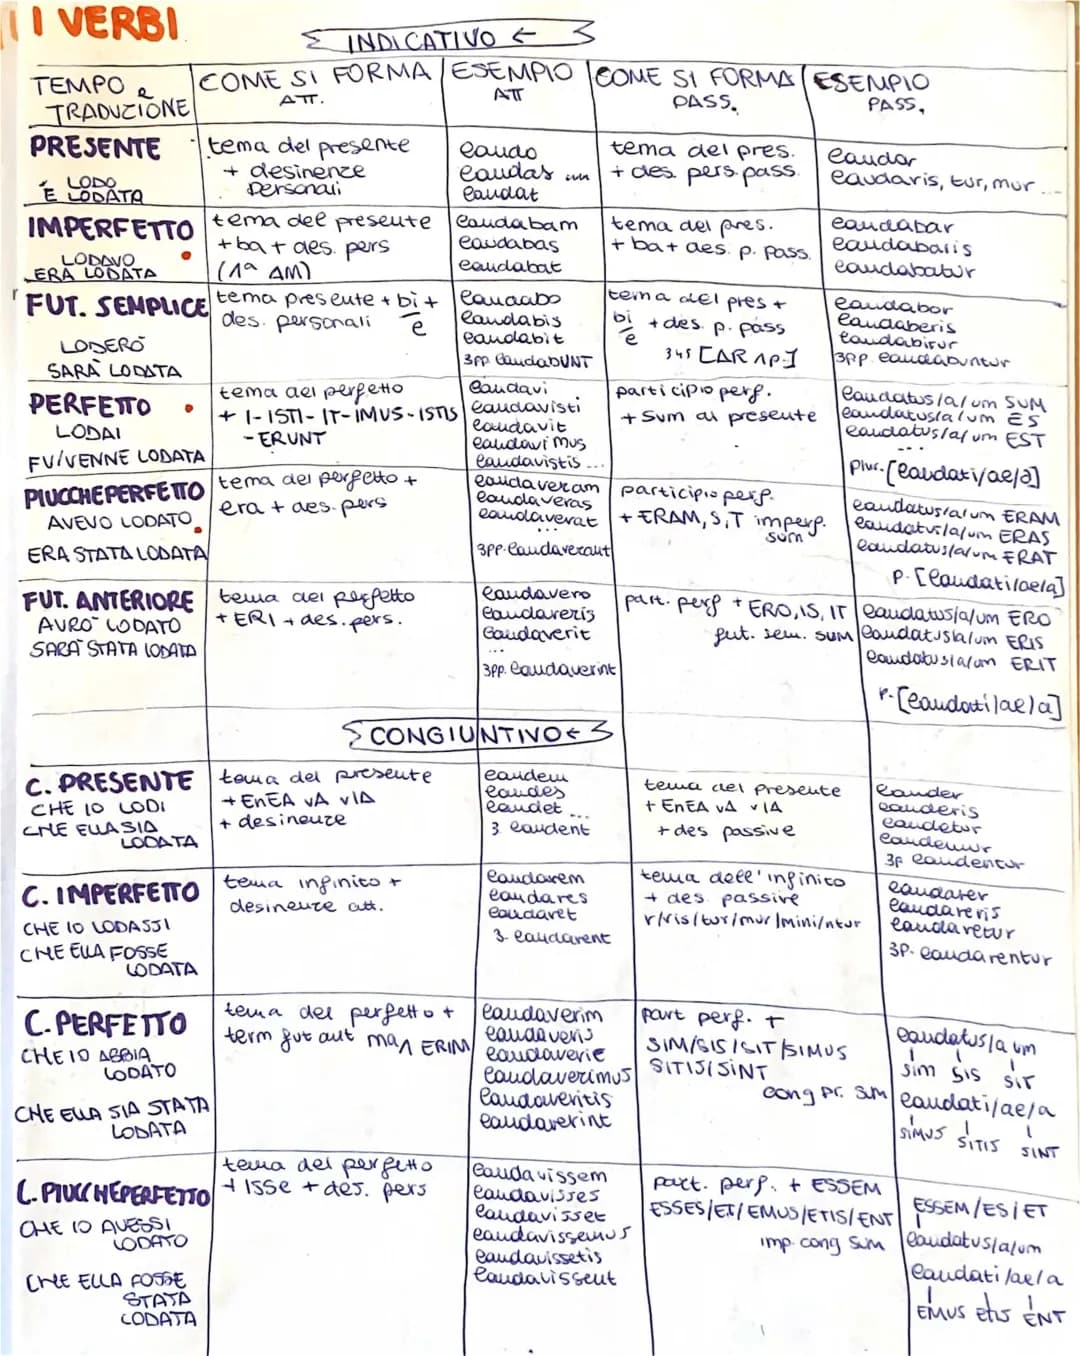 I VERBI
INDICATIVO
TEMPO e TRADUZIONE
COME SI FORMA ATT.
ESEMPIO ATT
COME SI FORMA PASS.
ESEMPIO PASS.
PRESENTE
LODO
È LODATA
tema del presente
+ desinenze
personali
laudo
laudas
laudat
tema del pres.
+ des. pers. pass.
laudor
laudaris, tur, mur ...
IMPERFETTO
LODAVO
ERA LODATA
tema del presente
+ ba + des. pers
(1ª AM)
laudabam
laudabas
laudabat
tema del pres.
+ ba + des. p. pass.
laudabar
laudabaris
laudabatur
FUT. SEMPLICE
LODERÒ
SARÀ LODATA
tema presente + bi +
des. personali e
laudabo
laudabis
laudabit
3pp laudaBUNT
tema del pres +
bi + des. p. pass
e
3ª4ª [AR 1ªp.]
laudabor
laudaberis
laudabitur
3pp. laudabuntur
PERFETTO
LODAI
FU/VENNE LODATA
tema del perfetto
+ I-ISTI-IT-IMUS-ISTIS
-ERUNT
laudavi
laudavisti
laudavit
laudavimus
laudavistis ...
participio perf.
+ sum al presente
laudatus/a/um SUM
laudatus/a/um ES
laudatus/a/um EST
...
plur. [laudati/ae/a]
PIUCCHEPERFETTO
AVEVO LODATO
ERA STATA LODATA
tema del perfetto +
era + des. pers
laudaveram
laudaveras
laudaverat
3pp. laudaverant
participio perf.
+ ERAM, S, T imperf.
sum
laudatus/a/um ERAM
laudatus/a/um ERAS
laudatus/a/um ERAT
p. [laudati/ae/a]
FUT. ANTERIORE
AVRÒ LODATO
SARÀ STATA LODATA
tema del perfetto
+ ERI + des. pers.
laudavero
laudaveris
laudaverit
...
3pp. laudaverint
part. perf + ERO, IS, IT
fut. sem. SUM
laudatus/a/um ERO
laudatus/a/um ERIS
laudatus/a/um ERIT
P. [laudati/ae/a]
CONGIUNTIVO
C. PRESENTE
CHE IO LODI
CHE ELLA SIA
LODATA
tema del presente
+ EnEA vA vIA
+ desinenze
laudem
laudes
laudet ...
3 laudent
tema del presente
+ EnEA vA vIA
+ des passive
lauder
lauderis
laudetur
laudemur
3p laudentur
C. IMPERFETTO
CHE IO LODASSI
CHE ELLA FOSSE
LODATA
tema infinito +
desinenze att.
laudarem
laudares
laudaret
3. laudarent
tema dell'infinito
+ des. passive
r/ris/tur/mur/mini/ntur
laudarer
laudareris
laudaretur
3p. laudarentur
C. PERFETTO
CHE IO ABBIA
LODATO
CHE ELLA SIA STATA
LODATA
tema del perfetto +
term fut ant ma 1 ERIM
laudaverim
laudaveris
laudaverit
laudaverimus
laudaveritis
laudaverint
part perf. +
SIM/SIS/SIT/SIMUS
SITIS/SINT
cong pr. sum
laudatus/a um
sim sis SIT
laudati/ae/a
SIMUS SITIS SINT
C. PIUCCHEPERFETTO
CHE IO AVESSI
LODATO
CHE ELLA FOSSE
STATA
LODATA
tema del perfetto
+ ISSE + des. pers
laudavissem
laudavisses
laudavisset
laudavissemus
laudavissetis
laudavissent
part. perf. + ESSEM
ESSES/ET/EMUS/ETIS/ENT
imp. cong sum
ESSEM/ES/ET
laudatus/a/um
laudati/ae/a
EMUS etis ENT